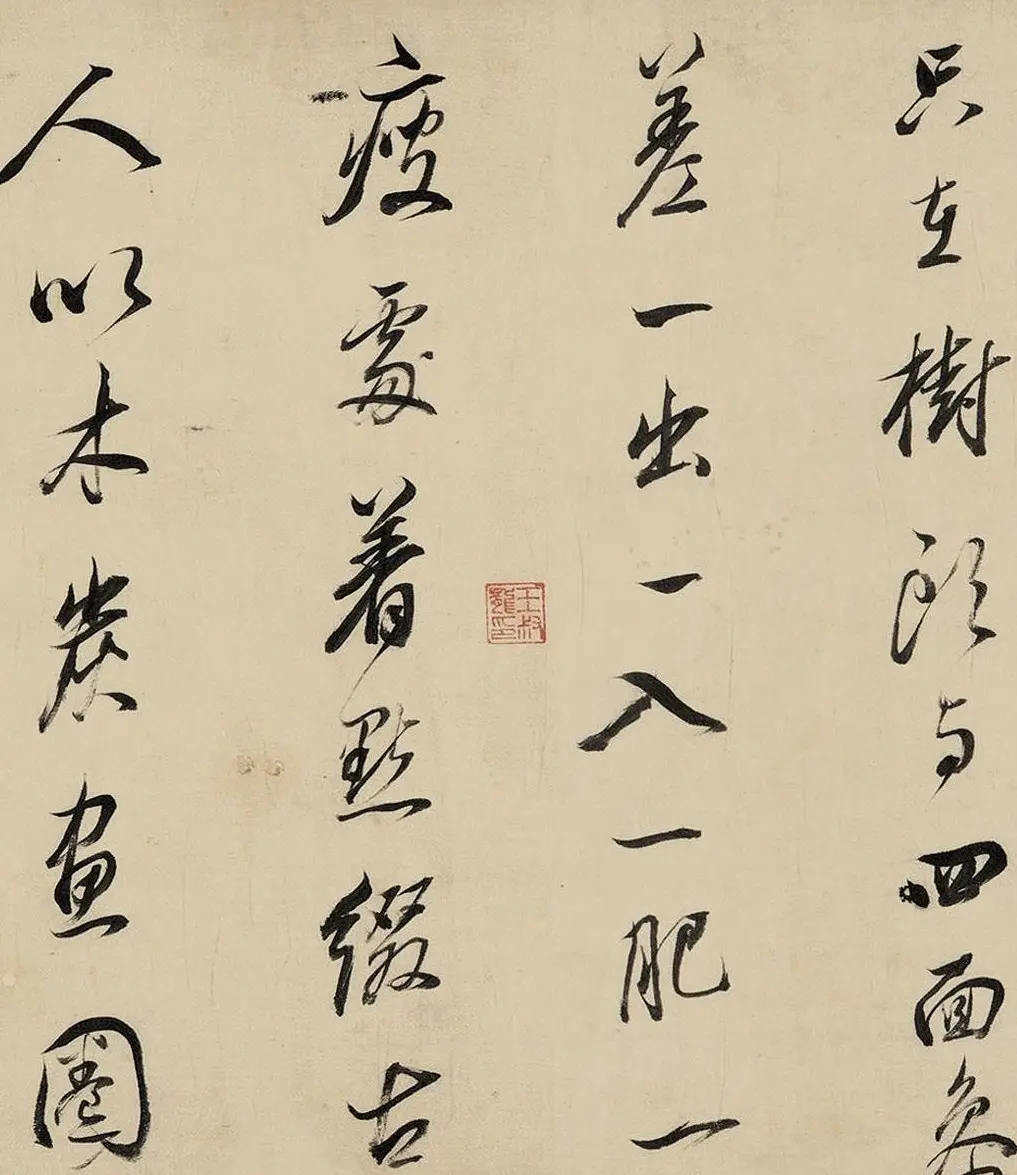 只在樹頭与四面參
差一出一入一肥一
瘦處着點綴古
人以木炭畫圈
王叔
印